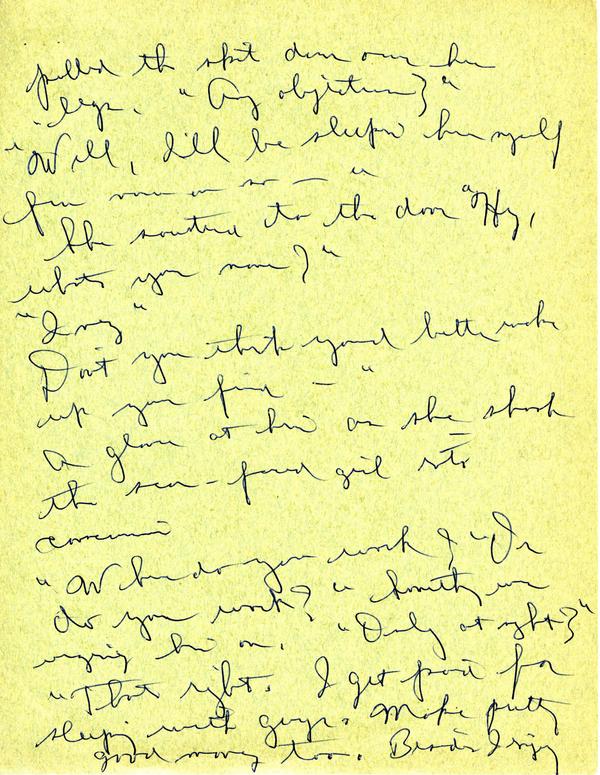 pulled the skirt down over her
legs. "Any objections?"
"Well, I'll be sleepin' here myself
from now on so — "
She sauntered to the door "Hey,
what's your name?"
"Inez"
Don't you think you'd better wake
up your friend — "
a glance at him as she shook
the scar-faced girl into
"Where do you work? "Or
do you work?" Something was
urging him on. "Only at night?"
"That right. I get paid for
sleeping with guys. Make pretty
good money too. Besides I enjoy